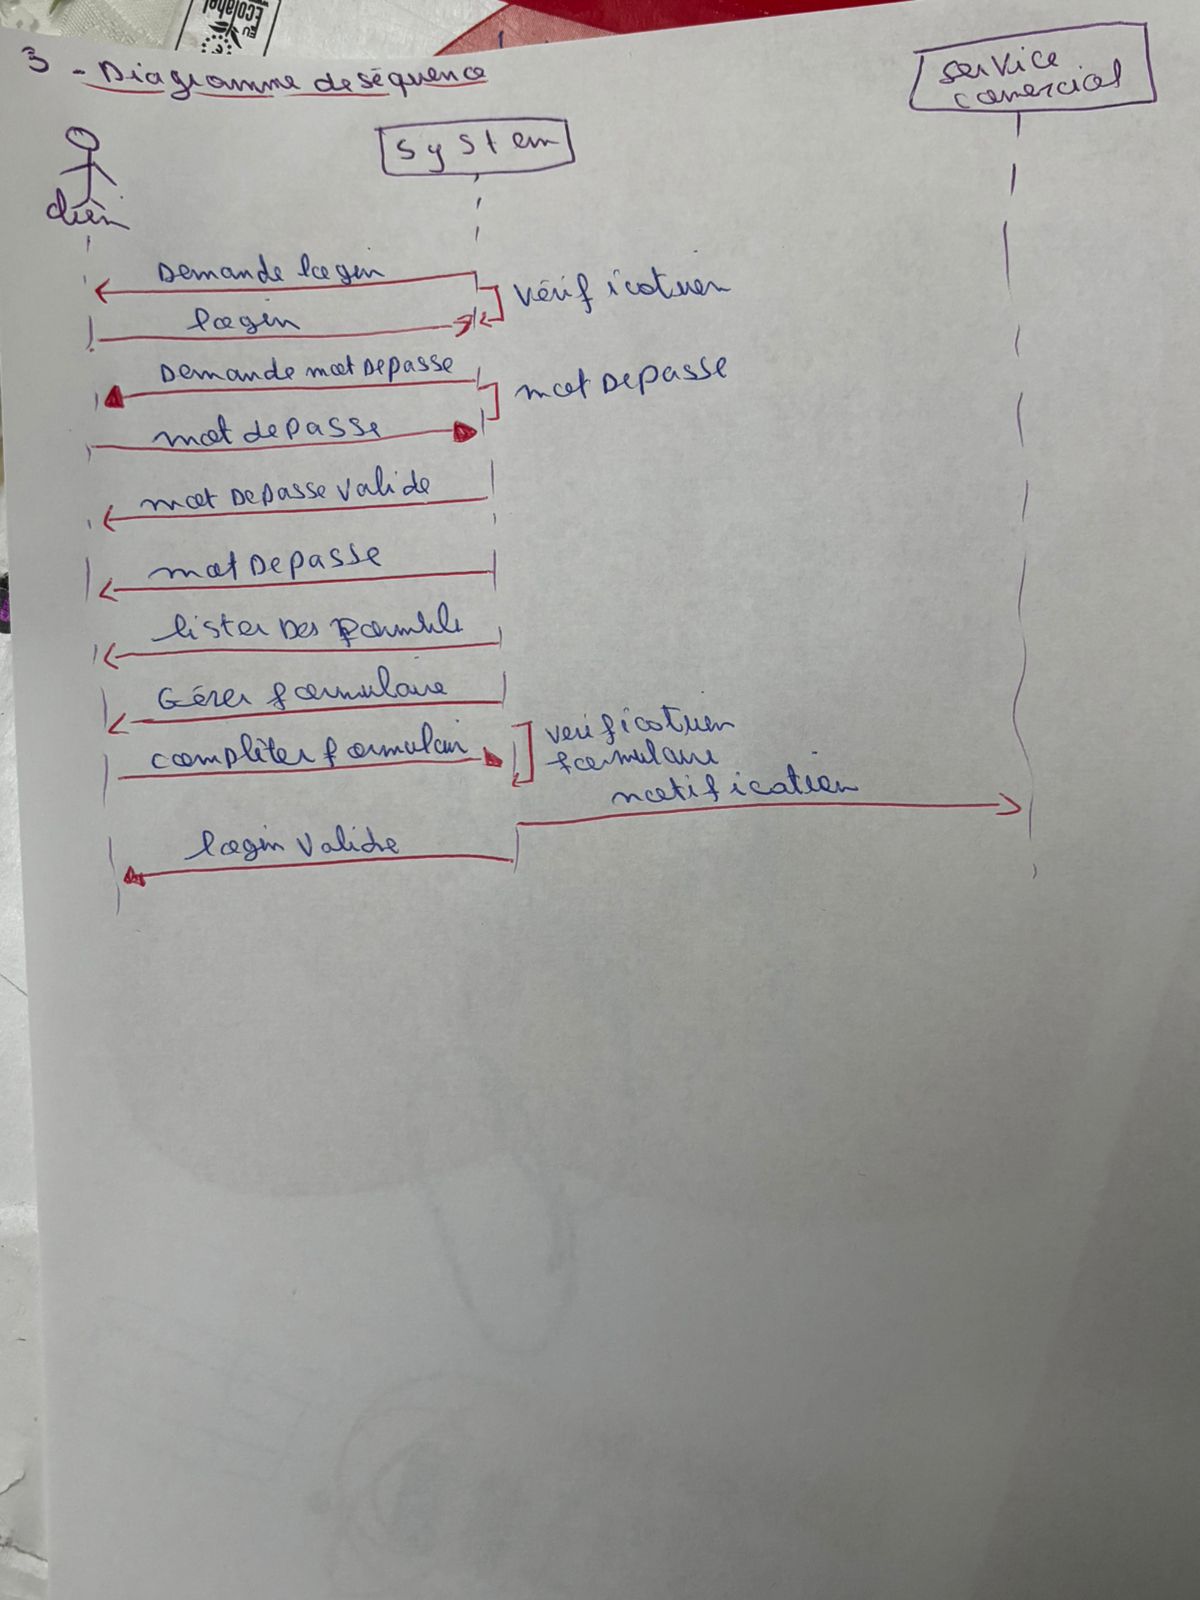 EU
Ecolabel
3 - Diagramme de séquence
service
comercial
System
Demande login
vérification
login
Demande mot Depasse
mot Depasse
mot depasse
mot Depasse valide
mot Depasse
lister Des
Gérer formulaire
verification
compléter formulair
formulaire
notification
login valide